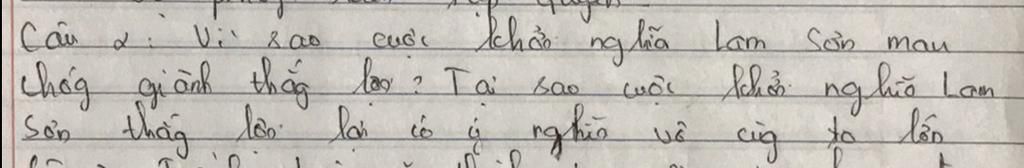 Câu 2: Vì sao cuộc khởi nghĩa Lam Sơn mau
chóg giành thắg lợi? Tại sao cuộc khởi nghĩa Lam
Sơn thắg lợi lại có ý nghĩa vô cùg to lớn